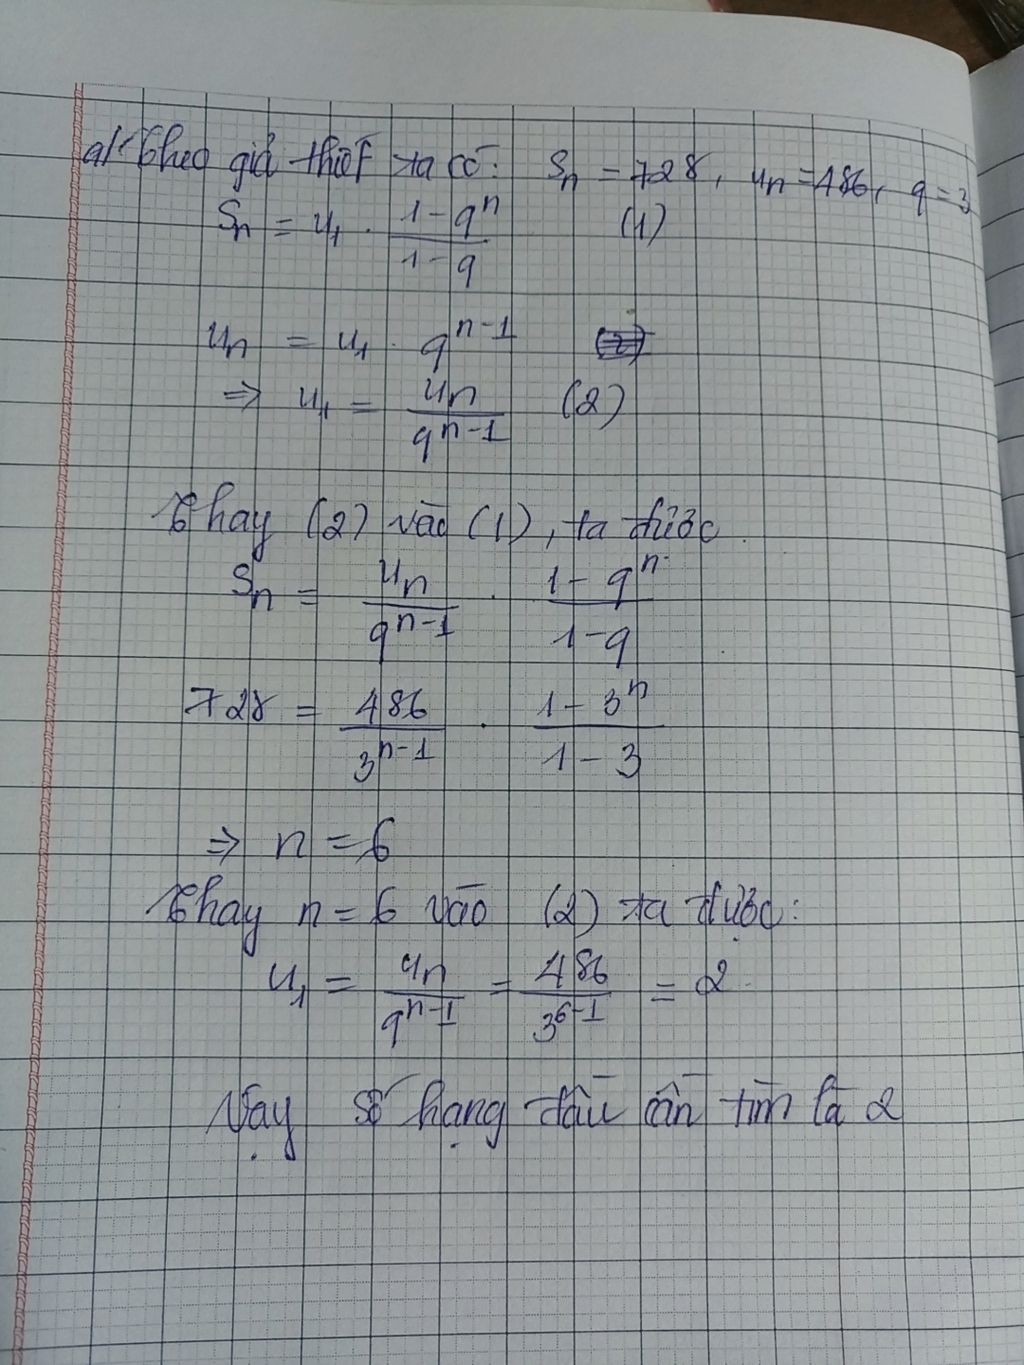 a/ Theo giả thiết ta có: Sn = 728, un = 486, q = 3
Sn = u1 . (1 - q^n)/(1 - q) (1)
un = u1 . q^(n-1)
⇒ u1 = un/q^(n-1) (2)
Thay (2) vào (1), ta được
Sn = un/q^(n-1) . (1 - q^n)/(1 - q)
728 = 486/3^(n-1) . (1 - 3^n)/(1 - 3)
⇒ n = 6
Thay n = 6 vào (2) ta được:
u1 = un/q^(n-1) = 486/3^(6-1) = 2
Vậy số hạng đầu cần tìm là 2